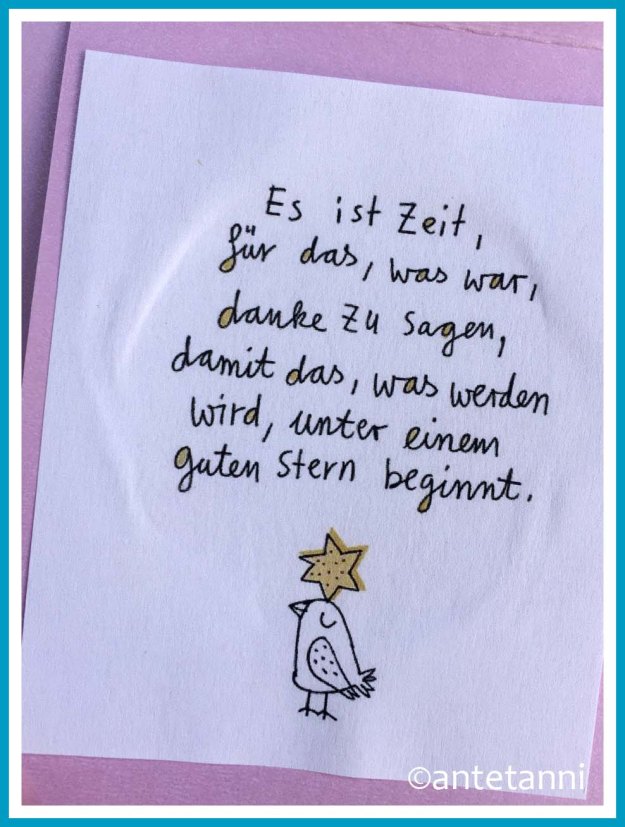 Es ist Zeit,
für das, was war,
danke zu sagen,
damit das, was werden
wird, unter einem
guten Stern beginnt.
©antetanni